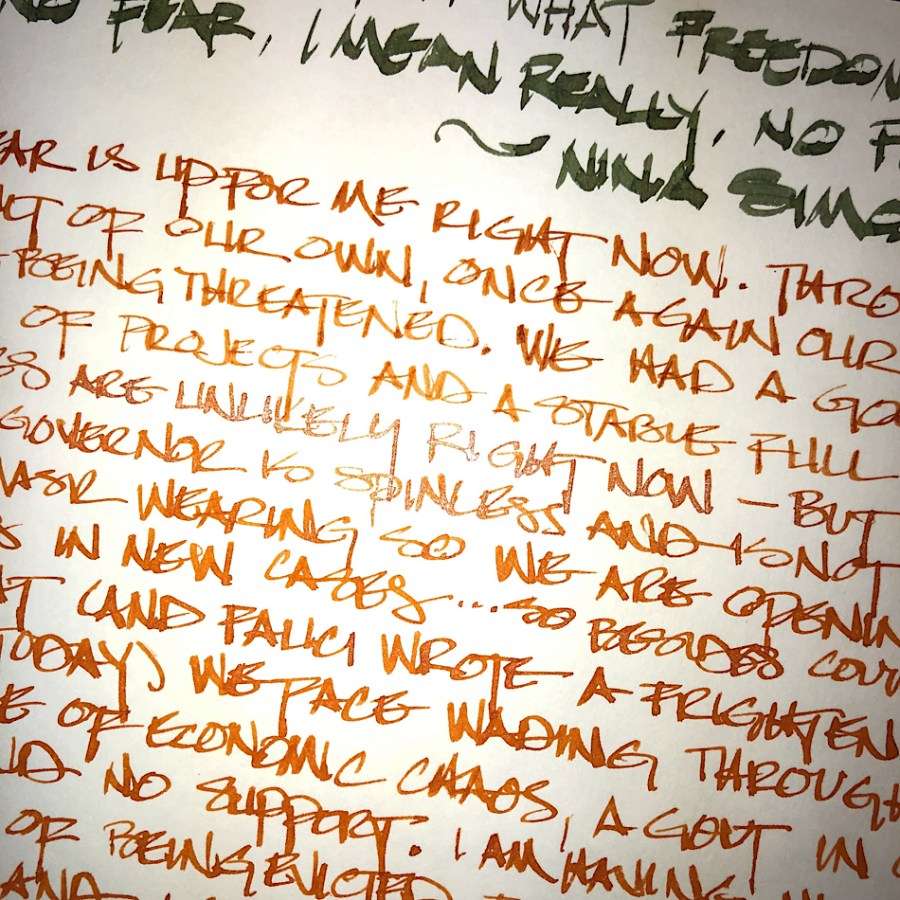 WHAT FREEDOM
NO FEAR, I MEAN REALLY, NO F
~ NINA SIMO
EAR IS UP FOR ME RIGHT NOW. THRO
OF OUR OWN, ONCE AGAIN OUR
BEING THREATENED. WE HAD A GO
OF PROJECTS AND A STABLE FULL
ES ARE UNLIKELY RIGHT NOW - BUT
GOVERNOR IS SPINLESS AND IS NOT
MASK WEARING SO WE ARE OPENIN
S IN NEW CASES...SO BESIDES COV
AT (AND FAUCI WROTE A FRIGHTEN
TODAY) WE FACE WADING THROUGH
E OF ECONOMIC CHAOS, A GOVT IN
NO SUPPORT. I AM HAVING
OF BEING EVICTED
AND